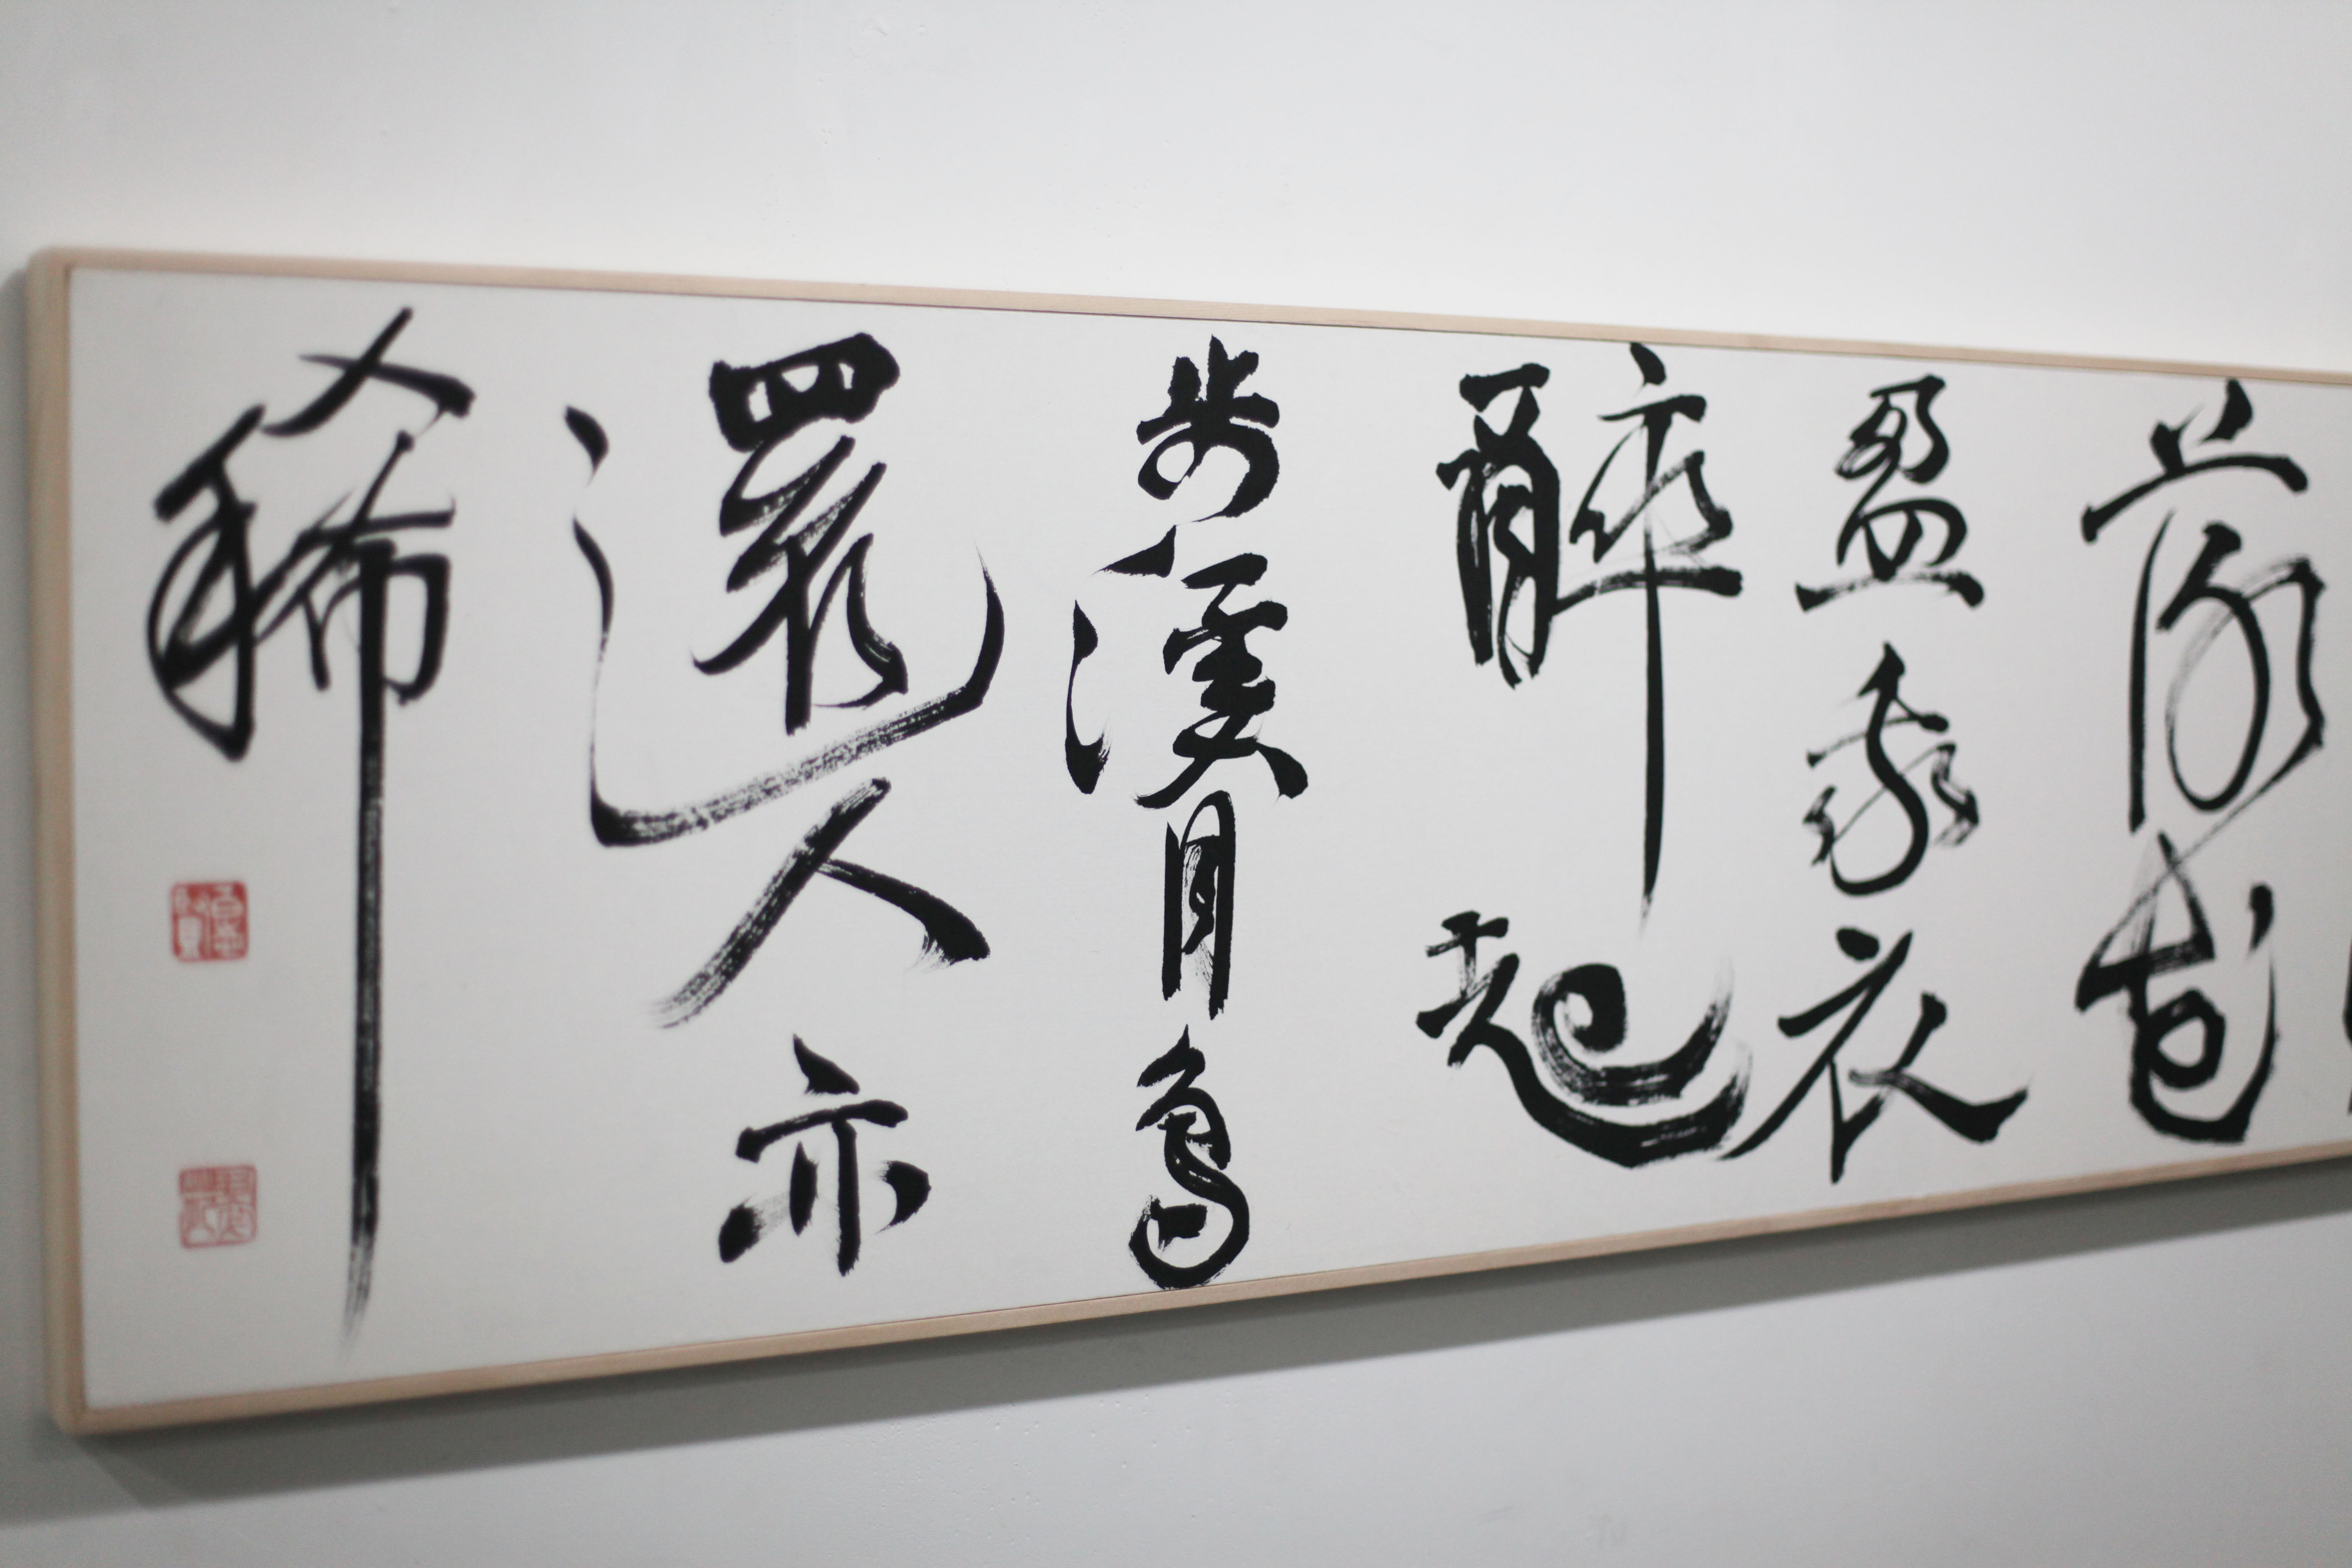 落花
盈我衣
醉起
步溪月鳥
還人亦
稀